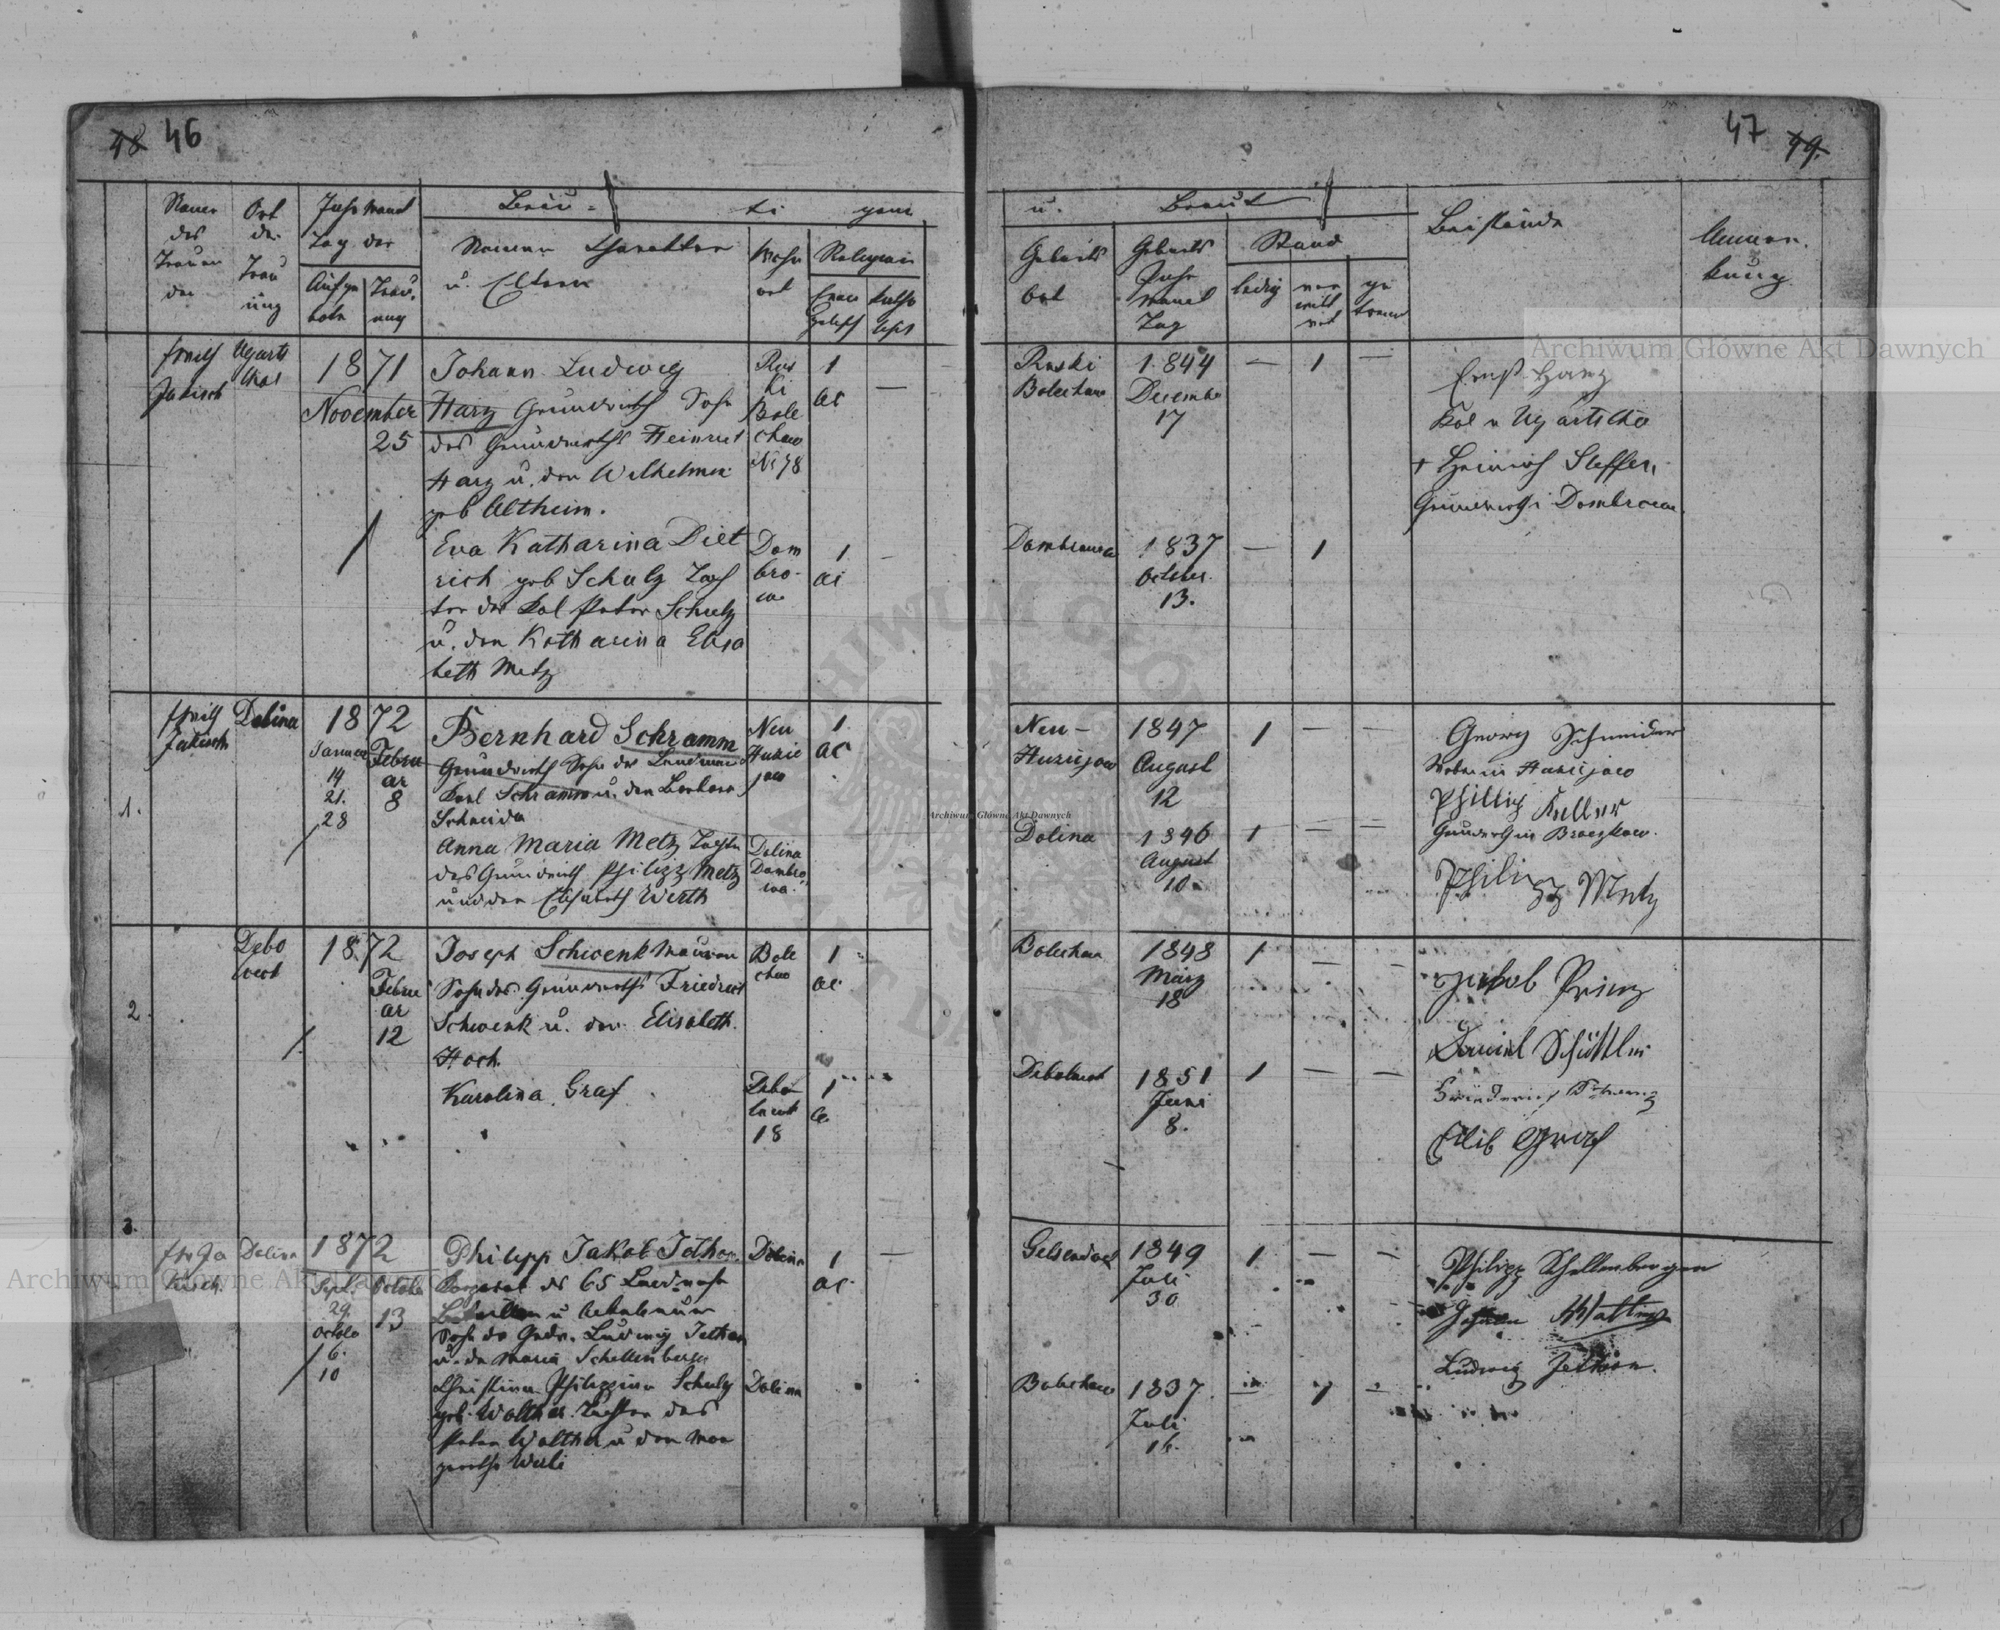 48 46
47 49.
Namen des Trauen den
Ort der Trau ung
Jahr Monat Tag der
Aufge bote
Trau ung
Bräu- ti gam
Namen Charakter u. Eltern
Wohn ort
Religion
Evan gelisch
katho lisch
u. Braut
Geburts Ort
Geburts Jahr Monat Tag
Stand
ledig
ver witt wet
ge trennt
Beistände
Anmer- kung
Jakisch
Ugarts thal
1871
November
25
Johann Ludwig
Harz Grundwirth Sohn
des Grundwirths Heinrich
Harz u. der Wilhelmine
geb Altheim.
Rus
ki
Bole
chow
N: 78
1
ac
—
Ruski
Bolechow
1844
December
17
—
1
—
Ernst Harz
Kol v Ugartsthal
+ Heinrich Steffen
Grundwirth i Dombrowa
Eva Katharina Diet
rich geb Schulz Toch
ter des Kol Peter Schulz
u. der Katharina Elisa
beth Metz
Dom
bro-
wa
1
ac
—
Dombrowa
1837
October
13.
—
1
1.
Jakisch
Dolina
1872
Januar
14
21.
28
Februar
8
Bernhard Schramm
Grundwirth Sohn des
Karl Schramm u. der Barbara
Schneider
Neu
Huzie
jow
1
ac
Neu-
Huziejow
1847
August
12
1
—
—
Georg Schneider
Huziejow
Philipp Keller
Philipp Metz
Anna Maria Metz Tochter
des Grundwirth Philipp Metz
und der Elisabeth Wirth
Dolina
Dombro
wa
Dolina
1846
August
10.
1
—
—
2.
Debo
wect
1872
Februar
12
Joseph Schwenk Maurer
Sohn des Grundwirths Friedrich
Schwenk u. der Elisabeth
Hoch.
Bole
chow
1
ac
Bolechow
1848
März
18
1
—
—
Jakob Prinz
Daniel Schüttler
Karolina Graf
18
1
1851
Juni
8.
1
—
—
Filib Graf
3.
Dolina
1872
Sept.
29
Octob
6.
10
October
13
Philipp Jakob
Korporal des 65
Sohn des Ludwig
u. der Maria Schellenberger
Dolina
1
ac
—
Gelsendorf
1849
Juli
30
1
—
—
Philipp Schellenberger
Johann
Ludwig
Christina Philippina Schulz
geb. Walther Tochter des
Peter Walther u der Mar
garetha
Dolina
Bolechow
1837
Juli
16.
—
1
—
Archiwum Główne Akt Dawnych
Archiwum Główne Akt Dawnych
Archiwum Główne Akt Dawnych